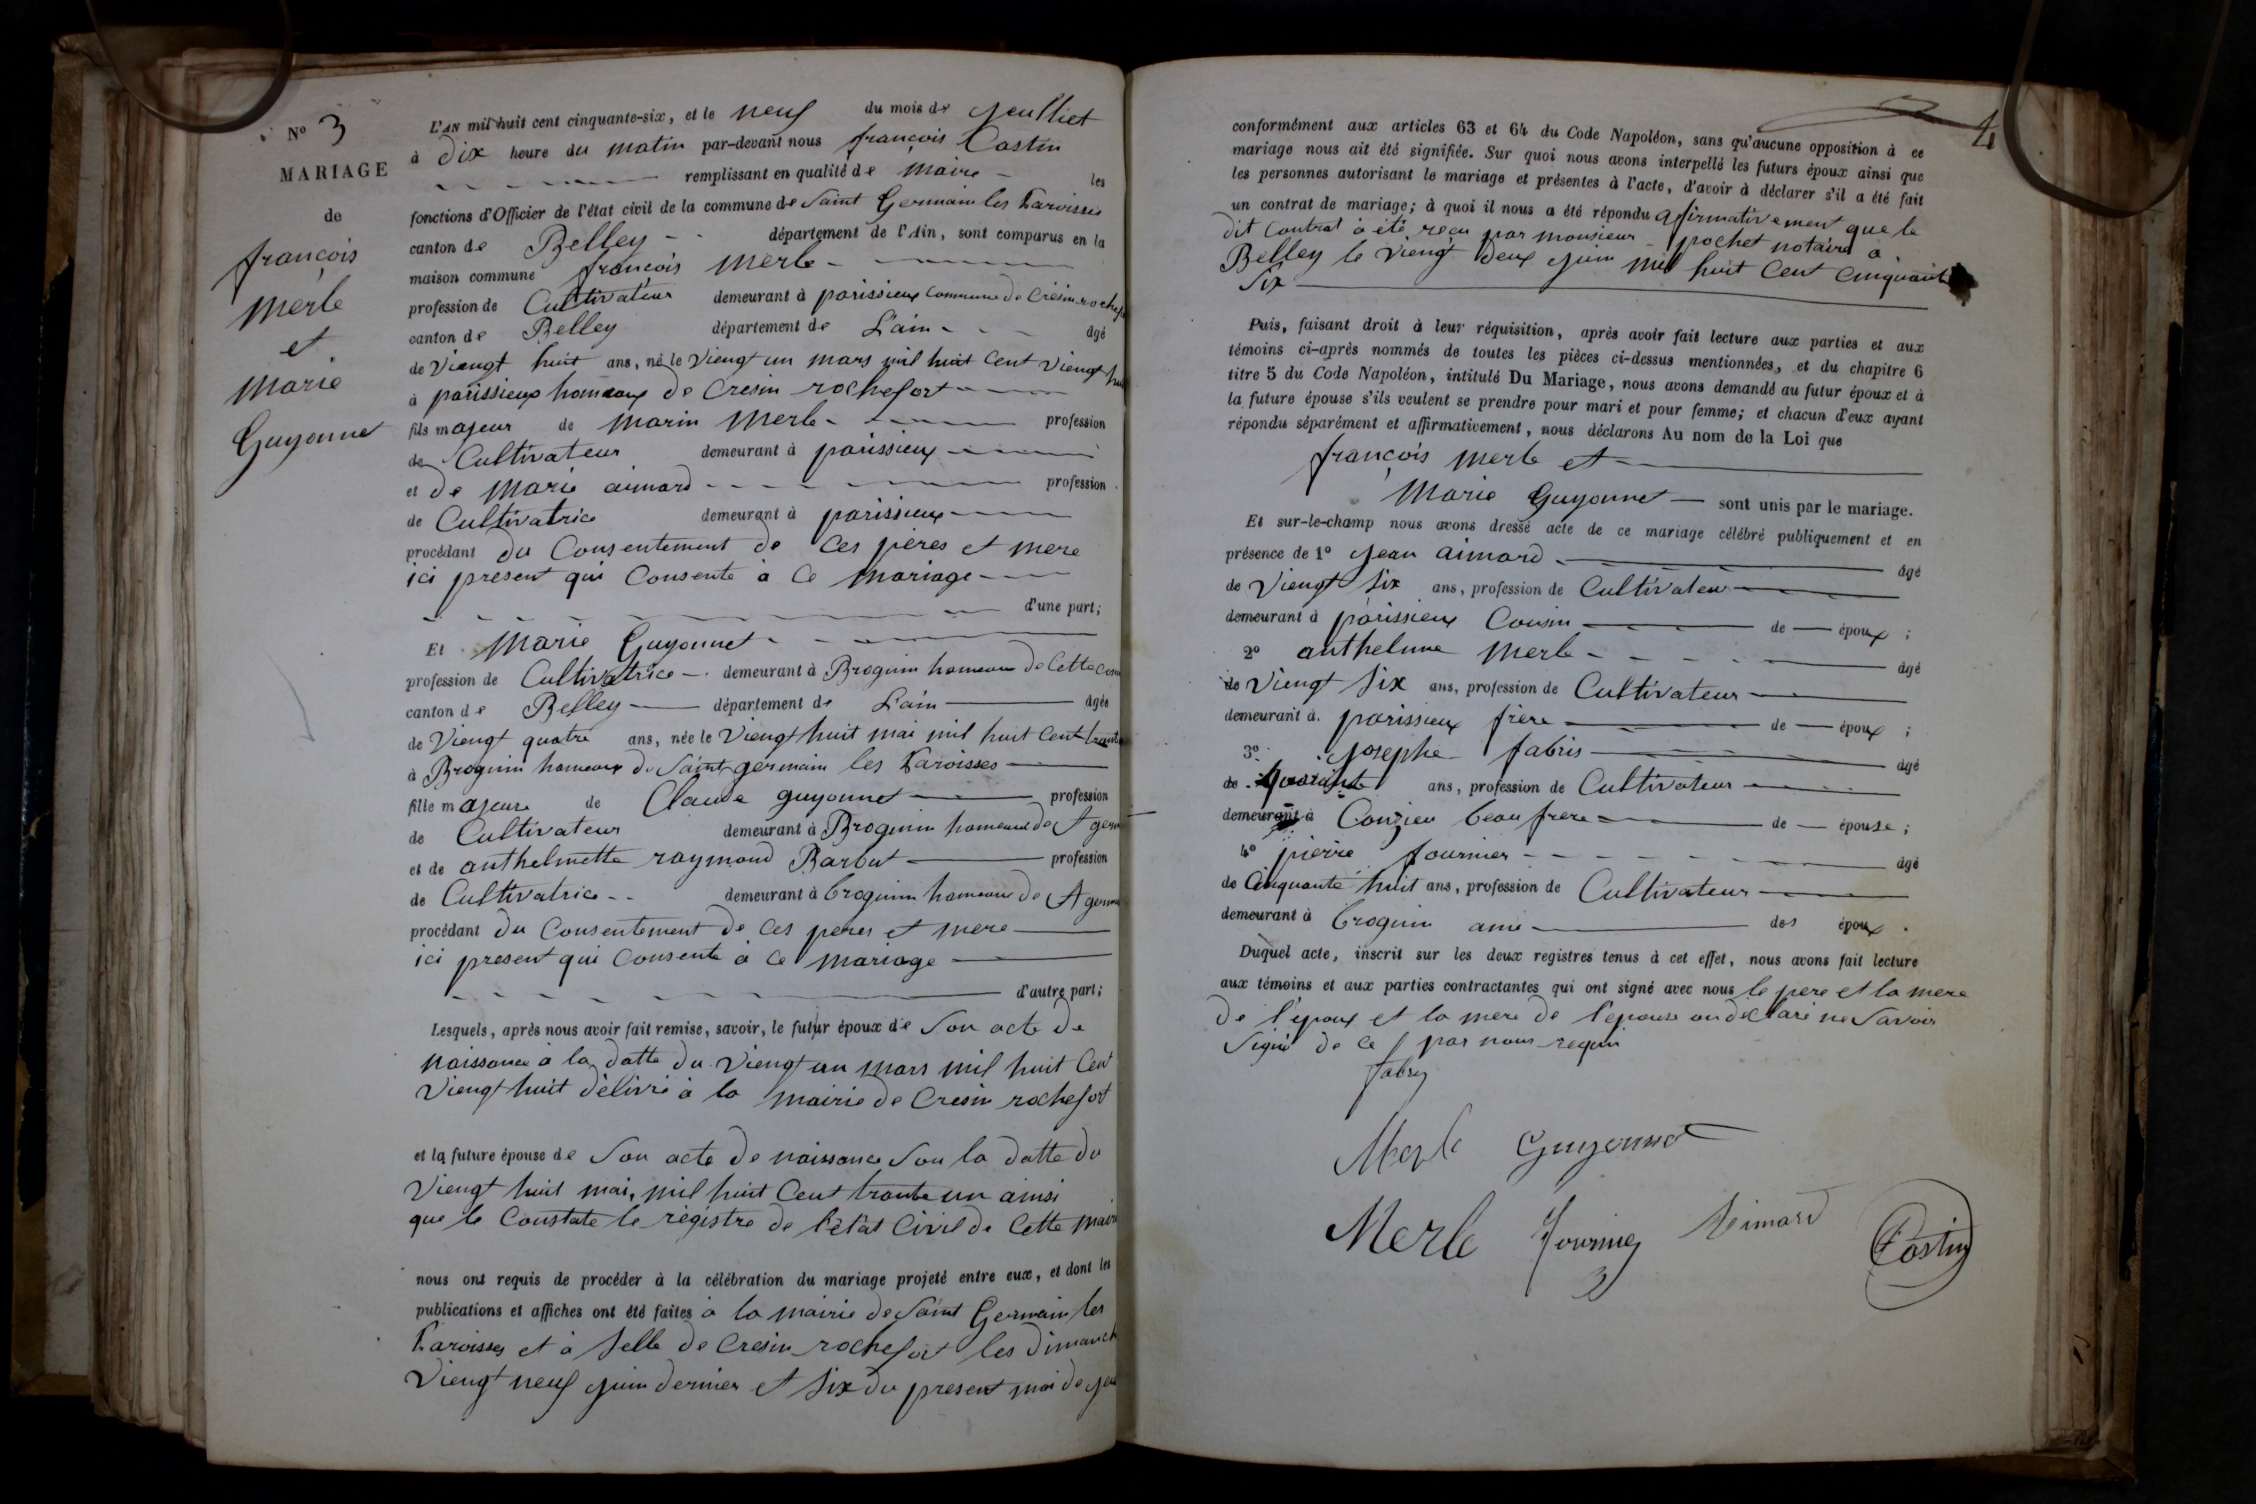 N° 3
MARIAGE
de
françois
Merle
et
Marie
Guyonnet
L'AN mil huit cent cinquante-six, et le neuf du mois de jeulliet
à Dix heure du matin par-devant nous françois Castin
remplissant en qualité de Maire les
fonctions d'Officier de l'état civil de la commune de Saint Germain les Paroisses
canton de Belley département de l'Ain, sont comparus en la
maison commune françois Merle
profession de Cultivateur demeurant à parissieux commune de Cresin rochefort
canton de Belley département de L'ain âgé
de Viengt huit ans, né le Viengt un mars mil huit Cent Viengt huit
à parissieux hameaux de Cresin rochefort
fils majeur de Marin Merle profession
de Cultivateur demeurant à parissieux
et de Marie aimard profession
de Cultivatrice demeurant à parissieux
procédant du Consentement de Ces pères et mere
ici present qui Consente à Ce mariage
d'une part;
Et Marie Guyonnet
profession de Cultivatrice demeurant à Brognin hameau de Cette Com
canton de Belley département de L'ain âgée
de Viengt quatre ans, née le Viengt huit mai mil huit Cent trante
à Brognin hameaux de Saint germain les Paroisses
fille majeure de Claude guyonnet profession
de Cultivateur demeurant à Brognin hameaux de St germ
et de anthelmette raymond Barbut profession
de Cultivatrice demeurant à brognin hameaux de St germ
procédant du Consentement de Ces peres et mere
ici present qui Consente à Ce mariage
d'autre part;
Lesquels, après nous avoir fait remise, savoir, le futur époux de Son acte de
naissance à la datte du Viengt un mars mil huit Cent
Viengt huit délivré à la mairie de Cresin rochefort
et la future épouse de Son acte de naissance Sou la datte du
Viengt huit mai, mil huit Cent trante un ainsi
que le Constate le régistre de l'état Civil de Cette Mairie
nous ont requis de procéder à la célébration du mariage projeté entre eux, et dont les
publications et affiches ont été faites à la mairie de Saint Germain les
Paroisses et à Selle de Cresin rochefort les dimanch
Viengt neuf juin dernier et Six du present moi de jeu
4
conformément aux articles 63 et 64 du Code Napoléon, sans qu'aucune opposition à ce
mariage nous ait été signifiée. Sur quoi nous avons interpellé les futurs époux ainsi que
les personnes autorisant le mariage et présentes à l'acte, d'avoir à déclarer s'il a été fait
un contrat de mariage; à quoi il nous a été répondu afirmativement que le
dit Contrat a été reçu par monsieur pochet notaire à
Belley le Viengt deux juin mil huit Cent Cinquante
Six
Puis, faisant droit à leur réquisition, après avoir fait lecture aux parties et aux
témoins ci-après nommés de toutes les pièces ci-dessus mentionnées, et du chapitre 6
titre 5 du Code Napoléon, intitulé Du Mariage, nous avons demandé au futur époux et à
la future épouse s'ils veulent se prendre pour mari et pour femme; et chacun d'eux ayant
répondu séparément et affirmativement, nous déclarons Au nom de la Loi que
françois Merle et
Marie Guyonnet sont unis par le mariage.
Et sur-le-champ nous avons dressé acte de ce mariage célébré publiquement et en
présence de 1° jean aimard âgé
de Viengt Six ans, profession de Cultivateur
demeurant à parissieux Cousin de époux ;
2° anthelme Merle âgé
de Viengt Six ans, profession de Cultivateur
demeurant à parissieux frère de époux ;
3° josephe fabris âgé
de quarante ans, profession de Cultivateur
demeurant à Conzieu beau frere de épouse ;
4° pierre fournier âgé
de Cinquante huit ans, profession de Cultivateur
demeurant à brognin ami des époux .
Duquel acte, inscrit sur les deux registres tenus à cet effet, nous avons fait lecture
aux témoins et aux parties contractantes qui ont signé avec nous le pere et la mere
de l'époux et la mere de l'epouse on déclaré ne Savoir
Signé de Ce par nous requin
fabry
Merle Guyonnet
Merle Fournier Aimard Castin